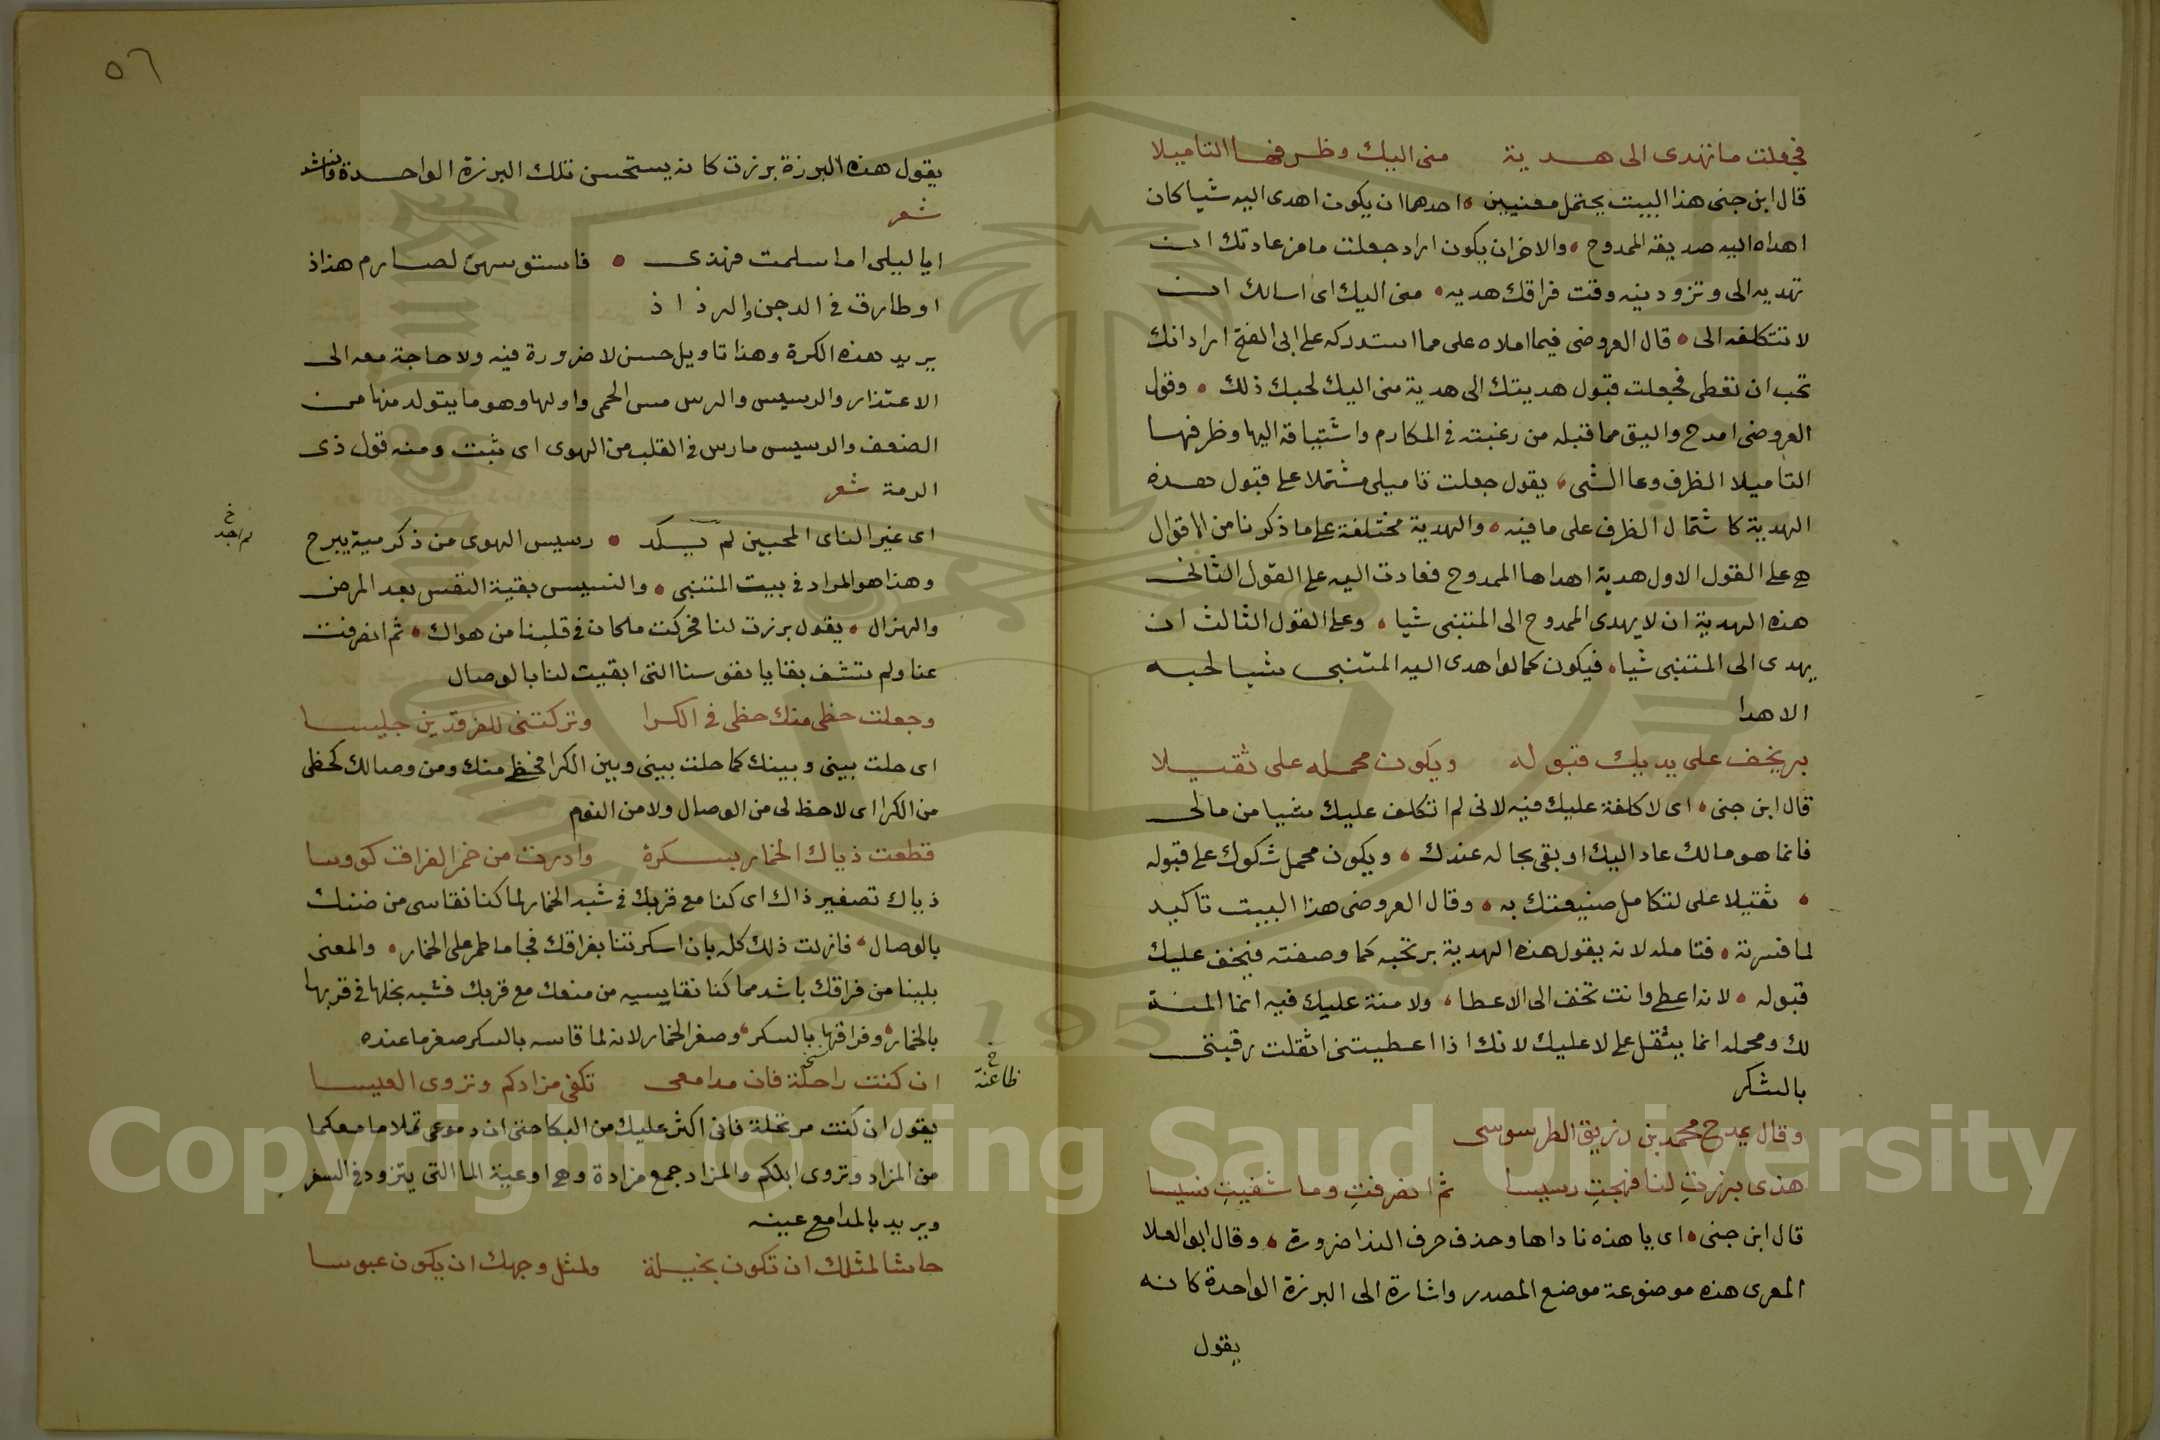 فجعلت ما تهدى الى هدية منى اليك وظرفها التاميلا
قال ابن جنى هذا البيت يحتمل معنيين احدهما ان يكون اهدى اليه شيا كان
اهداه اليه صديقه الممدوح والاخر ان يكون اراد جعلت ما من عادتك ان
تهديه الى وتزودينه وقت فراقك هديه منى اليك اى اسالك ان
لا تتكلفه الى قال العروضى فيما املاه على مما استدركه على ابى الفتح اراد انك
تحب ان تعطى فجعلت قبول هديتك الى هدية منى اليك لحبك ذلك وقول
العروضى امدح واليق مما قبله من رغبته فى المكارم واشتياقه اليها وظرفها
التاميلا الظرف وعا الشى يقول جعلت تاميلى مشتملا على قبول هذه
الهدية كاشتمال الظرف على ما فيه والهدية مختلفة على ما ذكرنا من الاقوال
هى على القول الاول هدية اهداها الممدوح فعادت اليه على القول الثانى
هذه الهدية ان لا يهدى الممدوح الى المتنبى شيا وعلى القول الثالث ان
يهدى الى المتنبى شيا فيكون كما لو اهدى اليه المتنبى شيا لحبه
الاهدا
بر يخف على يديك قبوله ويكون محمله على ثقيلا
قال ابن جنى اى لا كلفة عليك فيه لانى لم اتكلف عليك شيا من مالى
فانما هو مالك عاد اليك او بقى بحاله عندك ويكون محمل شكوك على قبوله
ثقيلا على لتكامل صنيعتك به وقال العروضى هذا البيت تاكيد
لما فسرته فتامله لانه يقول هذه الهدية بر تحبه كما وصفته فيخف عليك
قبوله لانه اعطى وانت تخف الى الاعطا ولا منة عليك فيه انما المنة
لك ومحمله انما يثقل على لا عليك لانك اذا اعطيتنى اثقلت رقبتى
بالشكر
وقال يمدح محمد بن رزيق الطرسوسى
هذى برزتِ لنا فهجتِ رسيسا ثم انصرفتِ وما شفيتِ نسيسا
قال ابن جنى اى يا هذه ناداها وحذف حرف الندا ضرورة وقال ابو العلا
المعرى هذه موضوعة موضع المصدر واشارة الى البرزة الواحدة كانه
يقول
٥٦
يقول هذه البرزة برزت كانه يستحسن تلك البرزة الواحدة وانشد
شعر
ايا ليلى اما سلمت فهذى فاستوسهى لصارم هذاذ
او طارق فى الدجن والرذاذ
يريد هذه الكرة وهذا تاويل حسن لا ضرورة فيه ولا حاجة معه الى
الاعتذار والرسيس والرس مس الحمى واولها وهو ما يتولد منها من
الضعف والرسيس مارس فى القلب من الهوى اى ثبت ومنه قول ذى
الرمة شعر
اى غير الناى المحبين لم يكد رسيس الهوى من ذكر مية يبرح
خ
لم اجد
وهذا هو المراد فى بيت المتنبى والنسيس بقية النفس بعد المرض
والهزال يقول برزت لنا فحركت ما كان فى قلبنا من هواك ثم انصرفت
عنا ولم تشف بقايا نفوسنا التى ابقيت لنا بالوصال
وجعلت حظى منك حظى فى الكرا وتركتنى للفرقدين جليسا
اى حلت بينى وبينك كما حلت بينى وبين الكرا فحظى منك ومن وصالك كحظى
من الكرا اى لا حظ لى من الوصال ولا من النوم
قطعت ذياك الخمار بسكرة وادرت من خمر الفراق كووسا
ذياك تصغير ذاك اى كنا مع قربك فى شبه الخمار لما كنا نقاسى من ضنك
بالوصال فازلت ذلك كله بان اسكرتنا بفراقك فجا ما طم على الخمار والمعنى
بلينا من فراقك باشد مما كنا نقاسيه من منعك مع قربك فشبه بخلها فى قربها
بالخمار وفراقها بالسكر وصغر الخمار لانه لما قاسه بالسكر صغر ما عنده
ان كنت راحلة فان مدامعى تكفى مزادكم وتروى العيسا
خ
ظاعنة
يقول ان كنت مرتحلة فانى اكثر عليك من البكا حتى ان دموعى تملا ما معكما
من المزاد وتروى ابلكم والمزاد جمع مزادة وهى اوعية الما التى يتزود فى السفر
ويريد بالمدامع عينه
حاشا لمثلك ان تكون بخيلة ولمثل وجهك ان يكون عبوسا
Copyright © King Saud University
1957